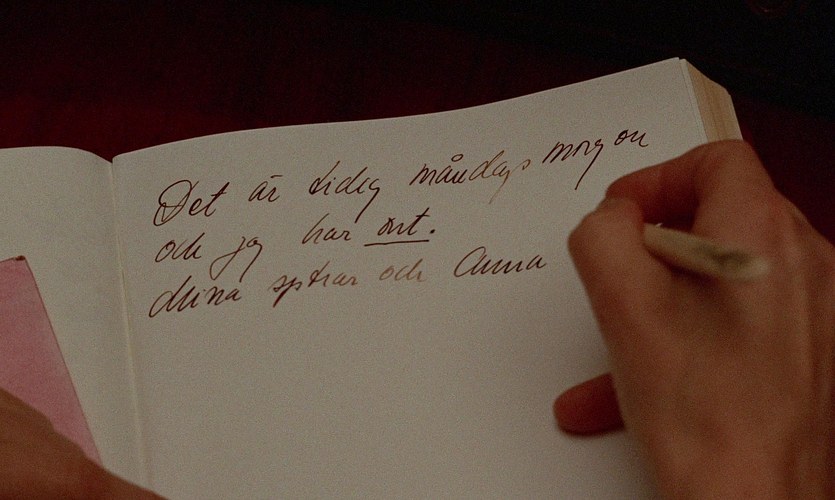 Det är tidig måndags morgon
och jag har ont.
Mina systrar och Anna